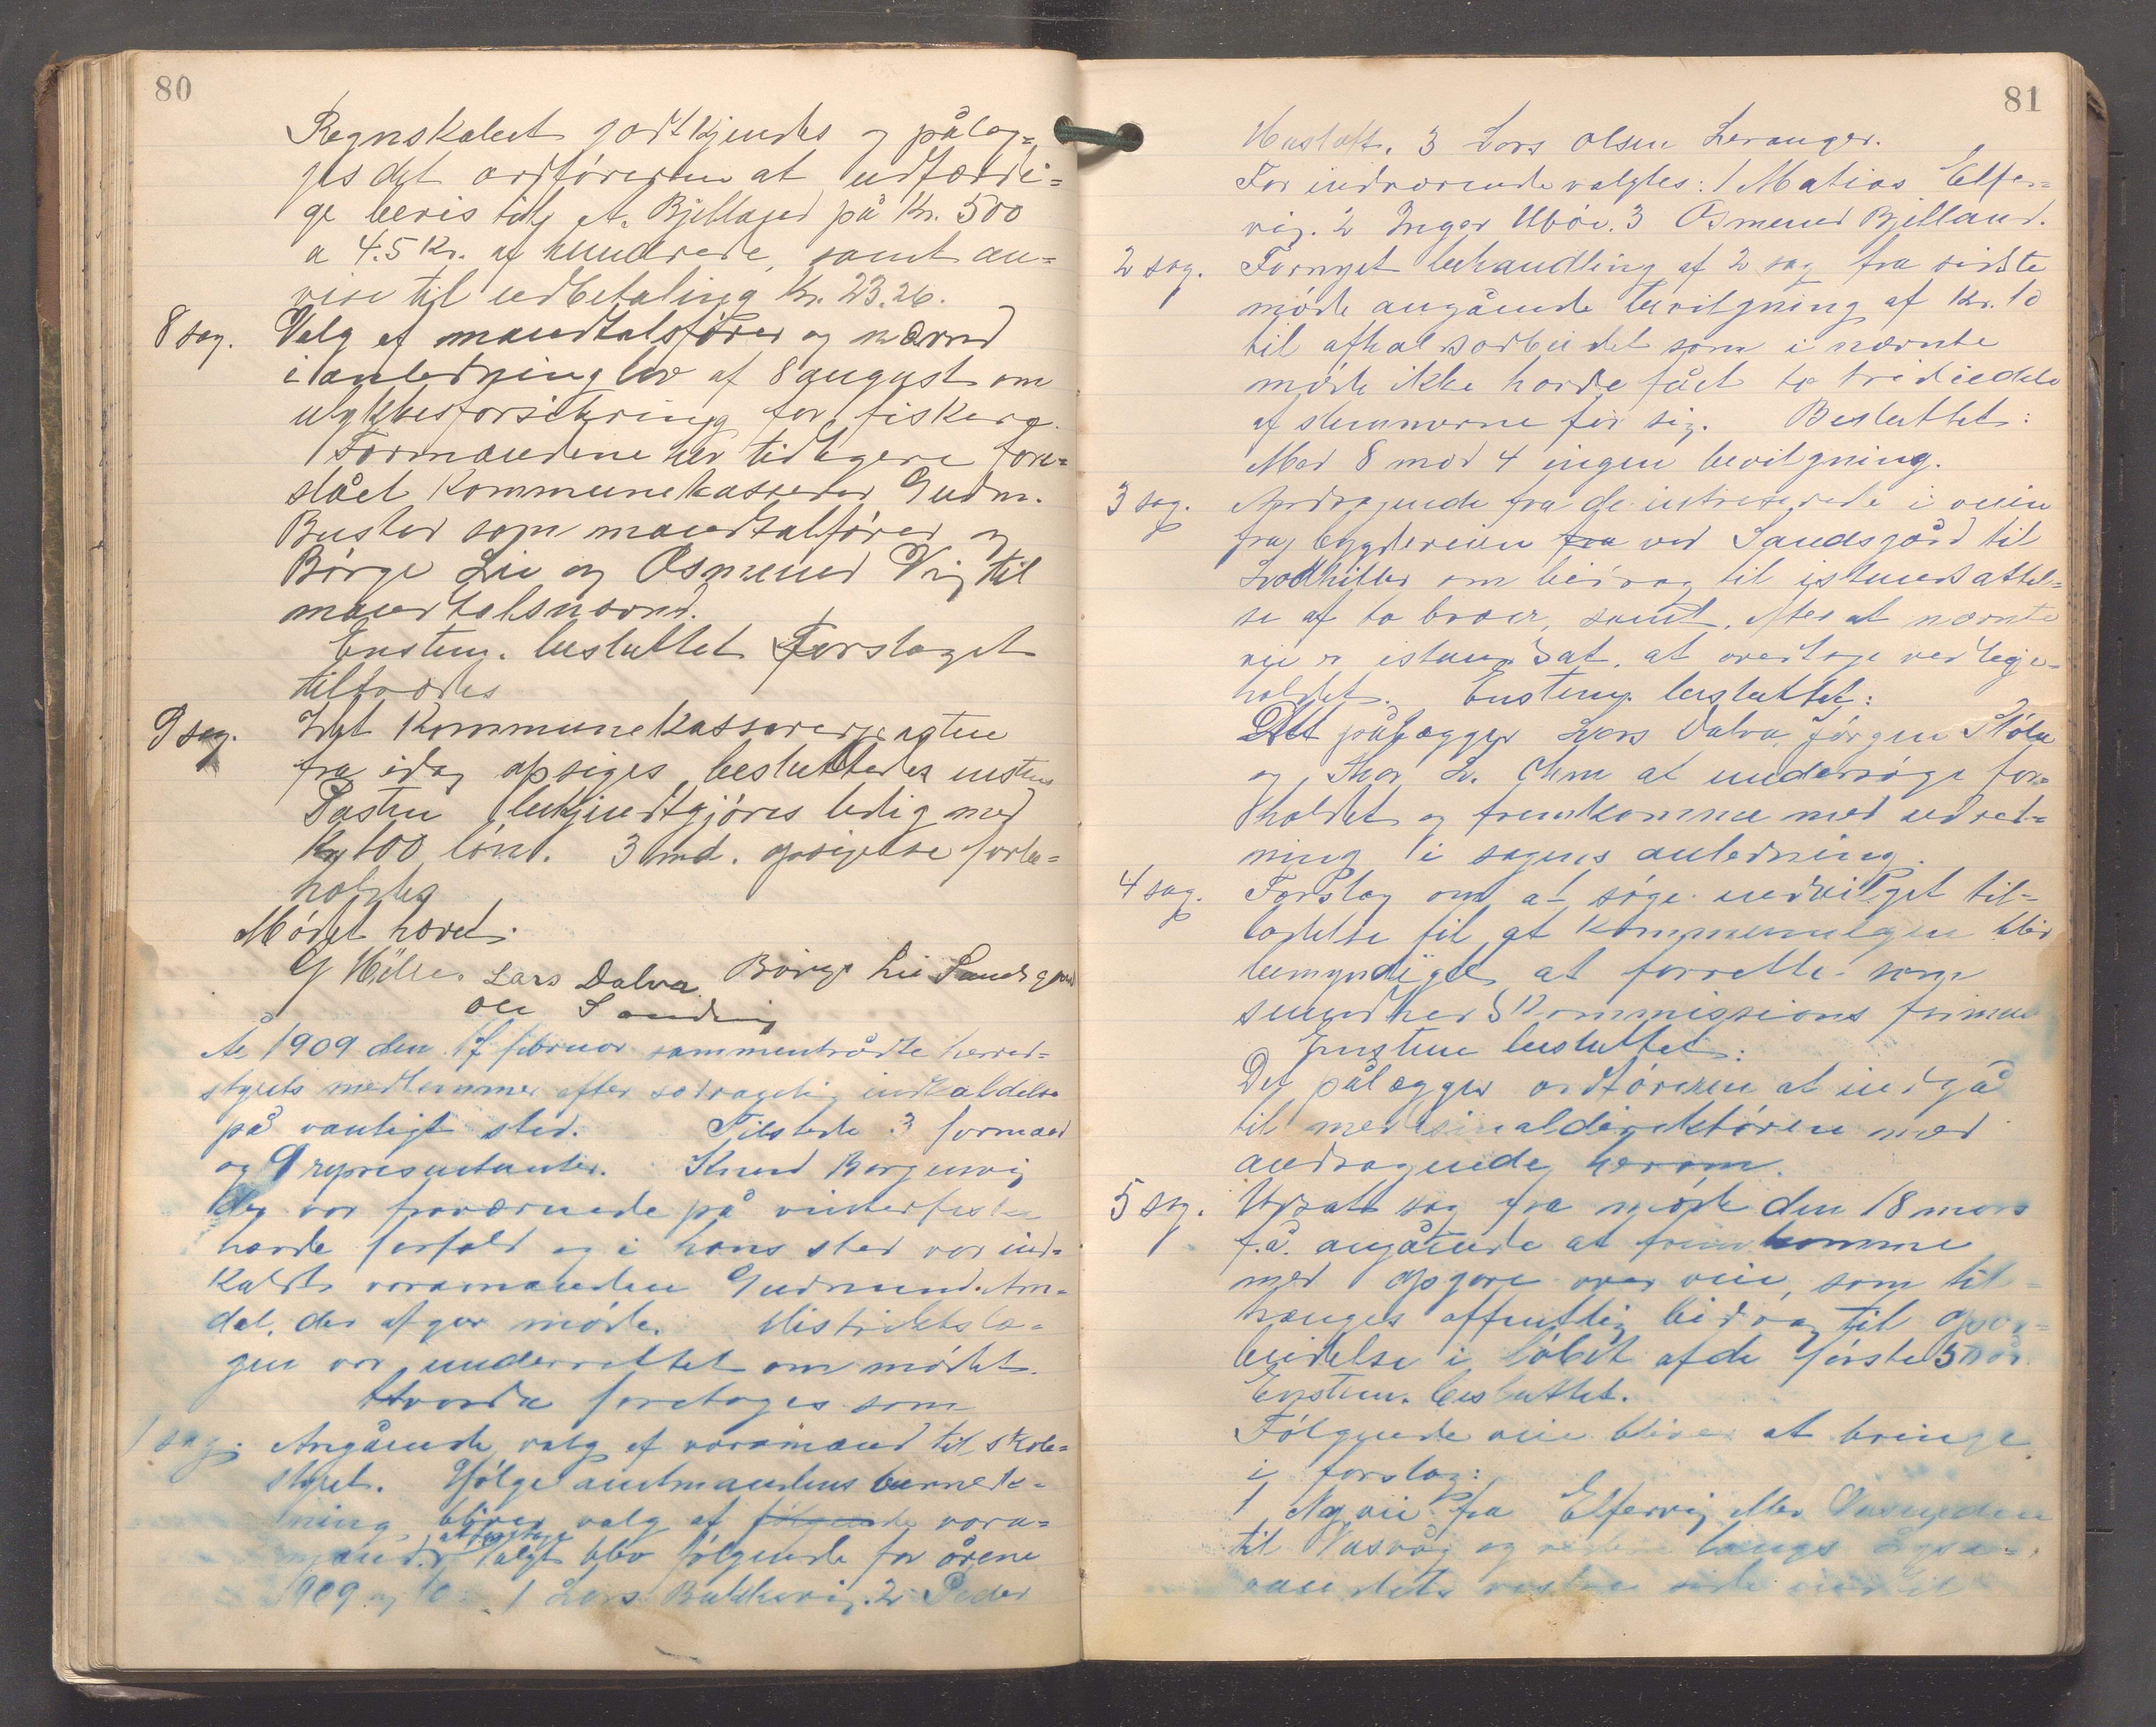 80
Regnskabet godtkjendes og pålæg=
ges det ordføreren at udfærdi=
ge bevis til A. Bjelland på Kr. 500
a 4.5 Kr. af hundrede, samt an=
vise til udbetaling Kr. 23.26.
8 sag. Valg af mandtalsfører og nævnd
i anledning lov af 8 august om
ulykkesforsikring for fiskere.
Formændene har tidligere fore=
slået Kommunekasserer Gudm.
som mandtalfører og
Børge Lie og Osmund Vig til
mandtalsnævnd.
Enstem. besluttet Forslaget
tiltrædes
9 sag. Idet Kommunekassererposten
fra idag opsiges besluttedes enstem
Posten bekjendtgjøres ledig med
Kr 100 løn. 3 md. opsigelse forbe=
holdes
Mødet hævet.
Lars Dalva Børge Lie Sandsgård
Ole
År 1909 den 17 februar sammentrådte herred=
styrets medlemmer efter indkaldelse
på vanligt sted. Tilstede 3 formænd
og 9 repræsentanter. Knud Borgenvig
der var fraværende på vinterfiske
havde forfald og i hans sted var ind=
kaldt varamanden Gudmund Am=
dal, der afgav møde. Distriktslæ=
gen var underrettet om mødet.
Hvorda foretoges som
1 sag. Angående valg af varamænd til skole=
styret. Ifølge amtmandens bemerk=
ning bliver valg af følgende vara=
mænd at foretage. Valgt blev følgende for årene
1909 og 10. 1 Lars Bakkevig. 2 Peder
81
3 Lars Olsen Leranger.
For indværende valgtes: 1 Matias Elfer=
vig. 2 Inger Ubøe. 3 Osmund Bjelland.
2 sag. Fornyet behandling af 2 sag fra sidste
møde angående bevilgning af Kr. 10
til afholdsarbeidet som i nævnte
møde ikke havde fået to trediedele
af stemmerne for sig. Besluttet:
Med 8 mod 4 ingen bevilgning.
3 sag. Andragende fra de intreserede i veien
fra bygdeveien fra ved Sandsgård til
om bidrag til istandsættel=
se af to broer, samt, efter at nævnte
vei er istandsat, at overtage vedlige=
holdet. Enstem. besluttet:
Det pålægges Lars Dalva, Jørgen Støle
og Thor L. at undersøge for=
holdet og fremkomme med udred=
ning i sagens anledning.
4 sag. Forslag om at søge udvirket til=
ladelse til at kommunelægen blir
bemyndiget at forrette som
sundhedskommissions formand
Enstem besluttet:
Det pålægges ordføreren at indgå
til medisinaldirektøren med
andragende herom.
5 sag. Udsatt sag fra møde den 18 mars
f.å. angående at fremkomme
med opgave over veie, som til=
trænges offentlig bidrag til oparb=
eidelse i løbet af de første 5 år.
Enstem. besluttet.
Følgende veie bliver at bringe
i forslag:
1 Ny vei fra Elfervig eller
til Vasvåg og videre langs
vandets vestre side